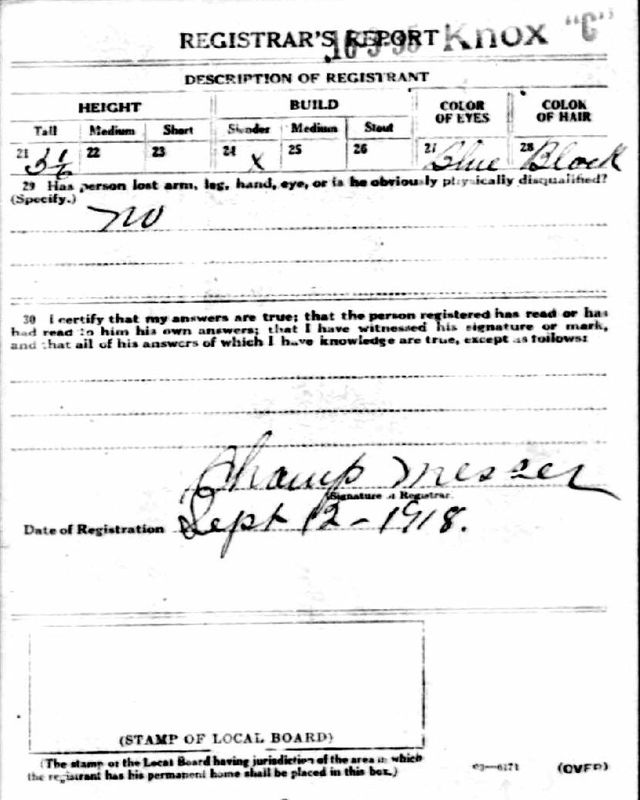 REGISTRAR'S REPORT 16-3-95 Knox "C"
DESCRIPTION OF REGISTRANT
HEIGHT BUILD COLOR OF EYES COLOR OF HAIR
Tall Medium Short Slender Medium Stout
21 22 23 24 x 25 26 27 Blue 28 Black
29 Has person lost arm, leg, hand, eye, or is he obviously physically disqualified?
(Specify.) no
30 I certify that my answers are true; that the person registered has read or has
had read to him his own answers; that I have witnessed his signature or mark,
and that all of his answers of which I have knowledge are true, except as follows:
Champ Messer
Signature of Registrar.
Date of Registration Sept 12-1918.
(STAMP OF LOCAL BOARD)
(The stamp of the Local Board having jurisdiction of the area in which
the registrant has his permanent home shall be placed in this box.)
03-6171 (OVER)